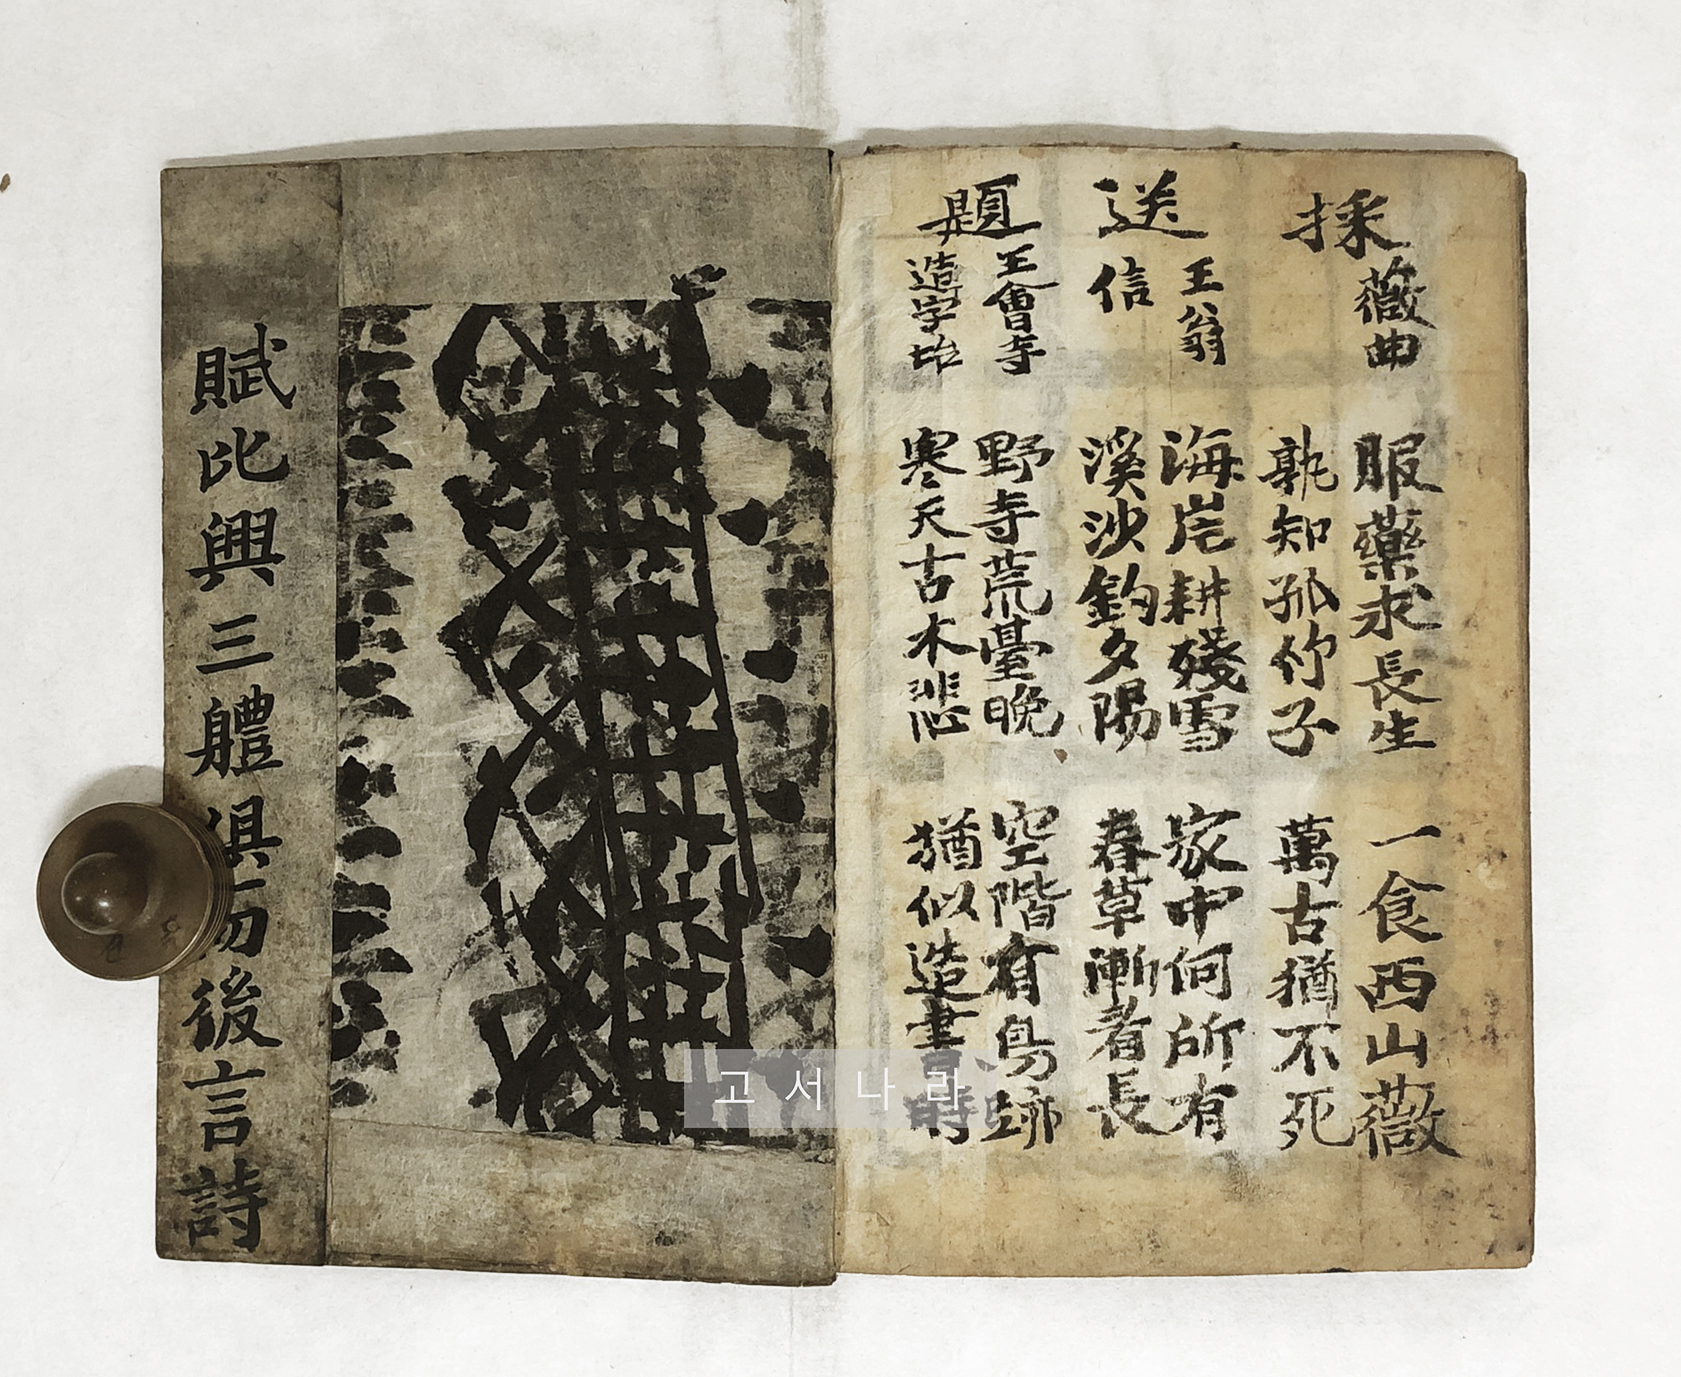 採薇曲
服藥求長生　一食西山薇
孰知孤竹子　萬古猶不死
送王翁信
海岸耕殘雪　家中何所有
溪沙釣夕陽　春草漸看長
題王會寺造字坮
野寺荒臺晚　空階有鳥跡
寒天古木悲　猶似造書時
賦比興三體俱後言詩
고서나라